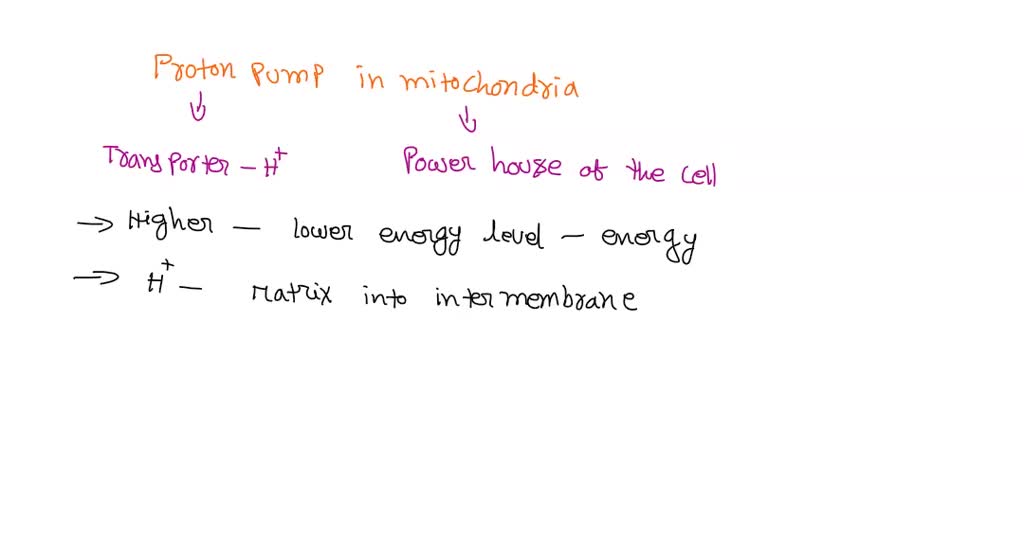 Proton Pump in mitochondria
Transporter - H+
Power house of the cell
→ Higher - lower energy level - energy
→ H+ - Matrix into intermembrane